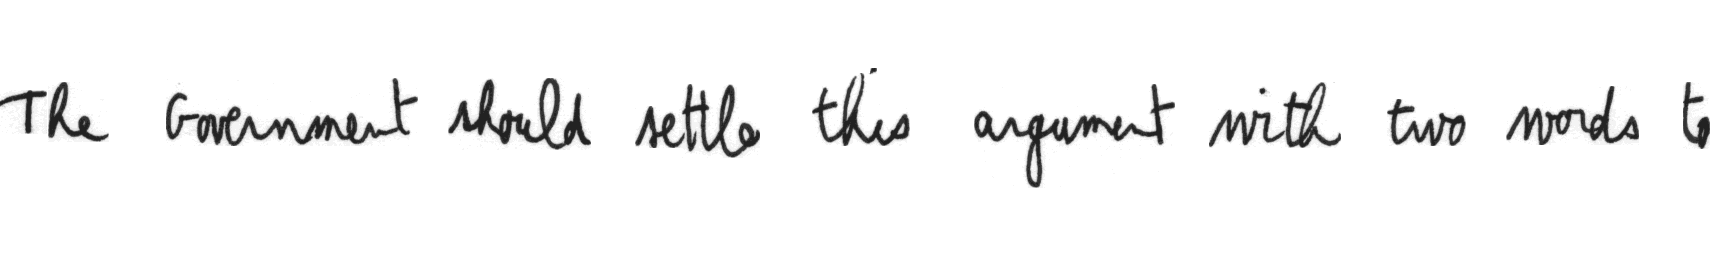 The Government should settle this argument with two words to